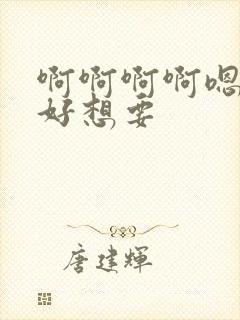 啊啊啊啊嗯
好想要
唐建輝